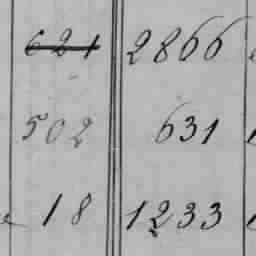 621 2866
502 631
18 1233